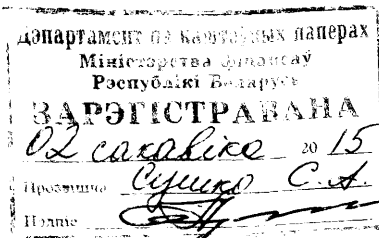 Дэпартамент па каштоўных паперах
Міністэрства фінансаў
Рэспублікі Беларусь
ЗАРЭГІСТРАВАНА
02 сакавіка 2015
Прозвішча Сушко С.А.
Подпіс